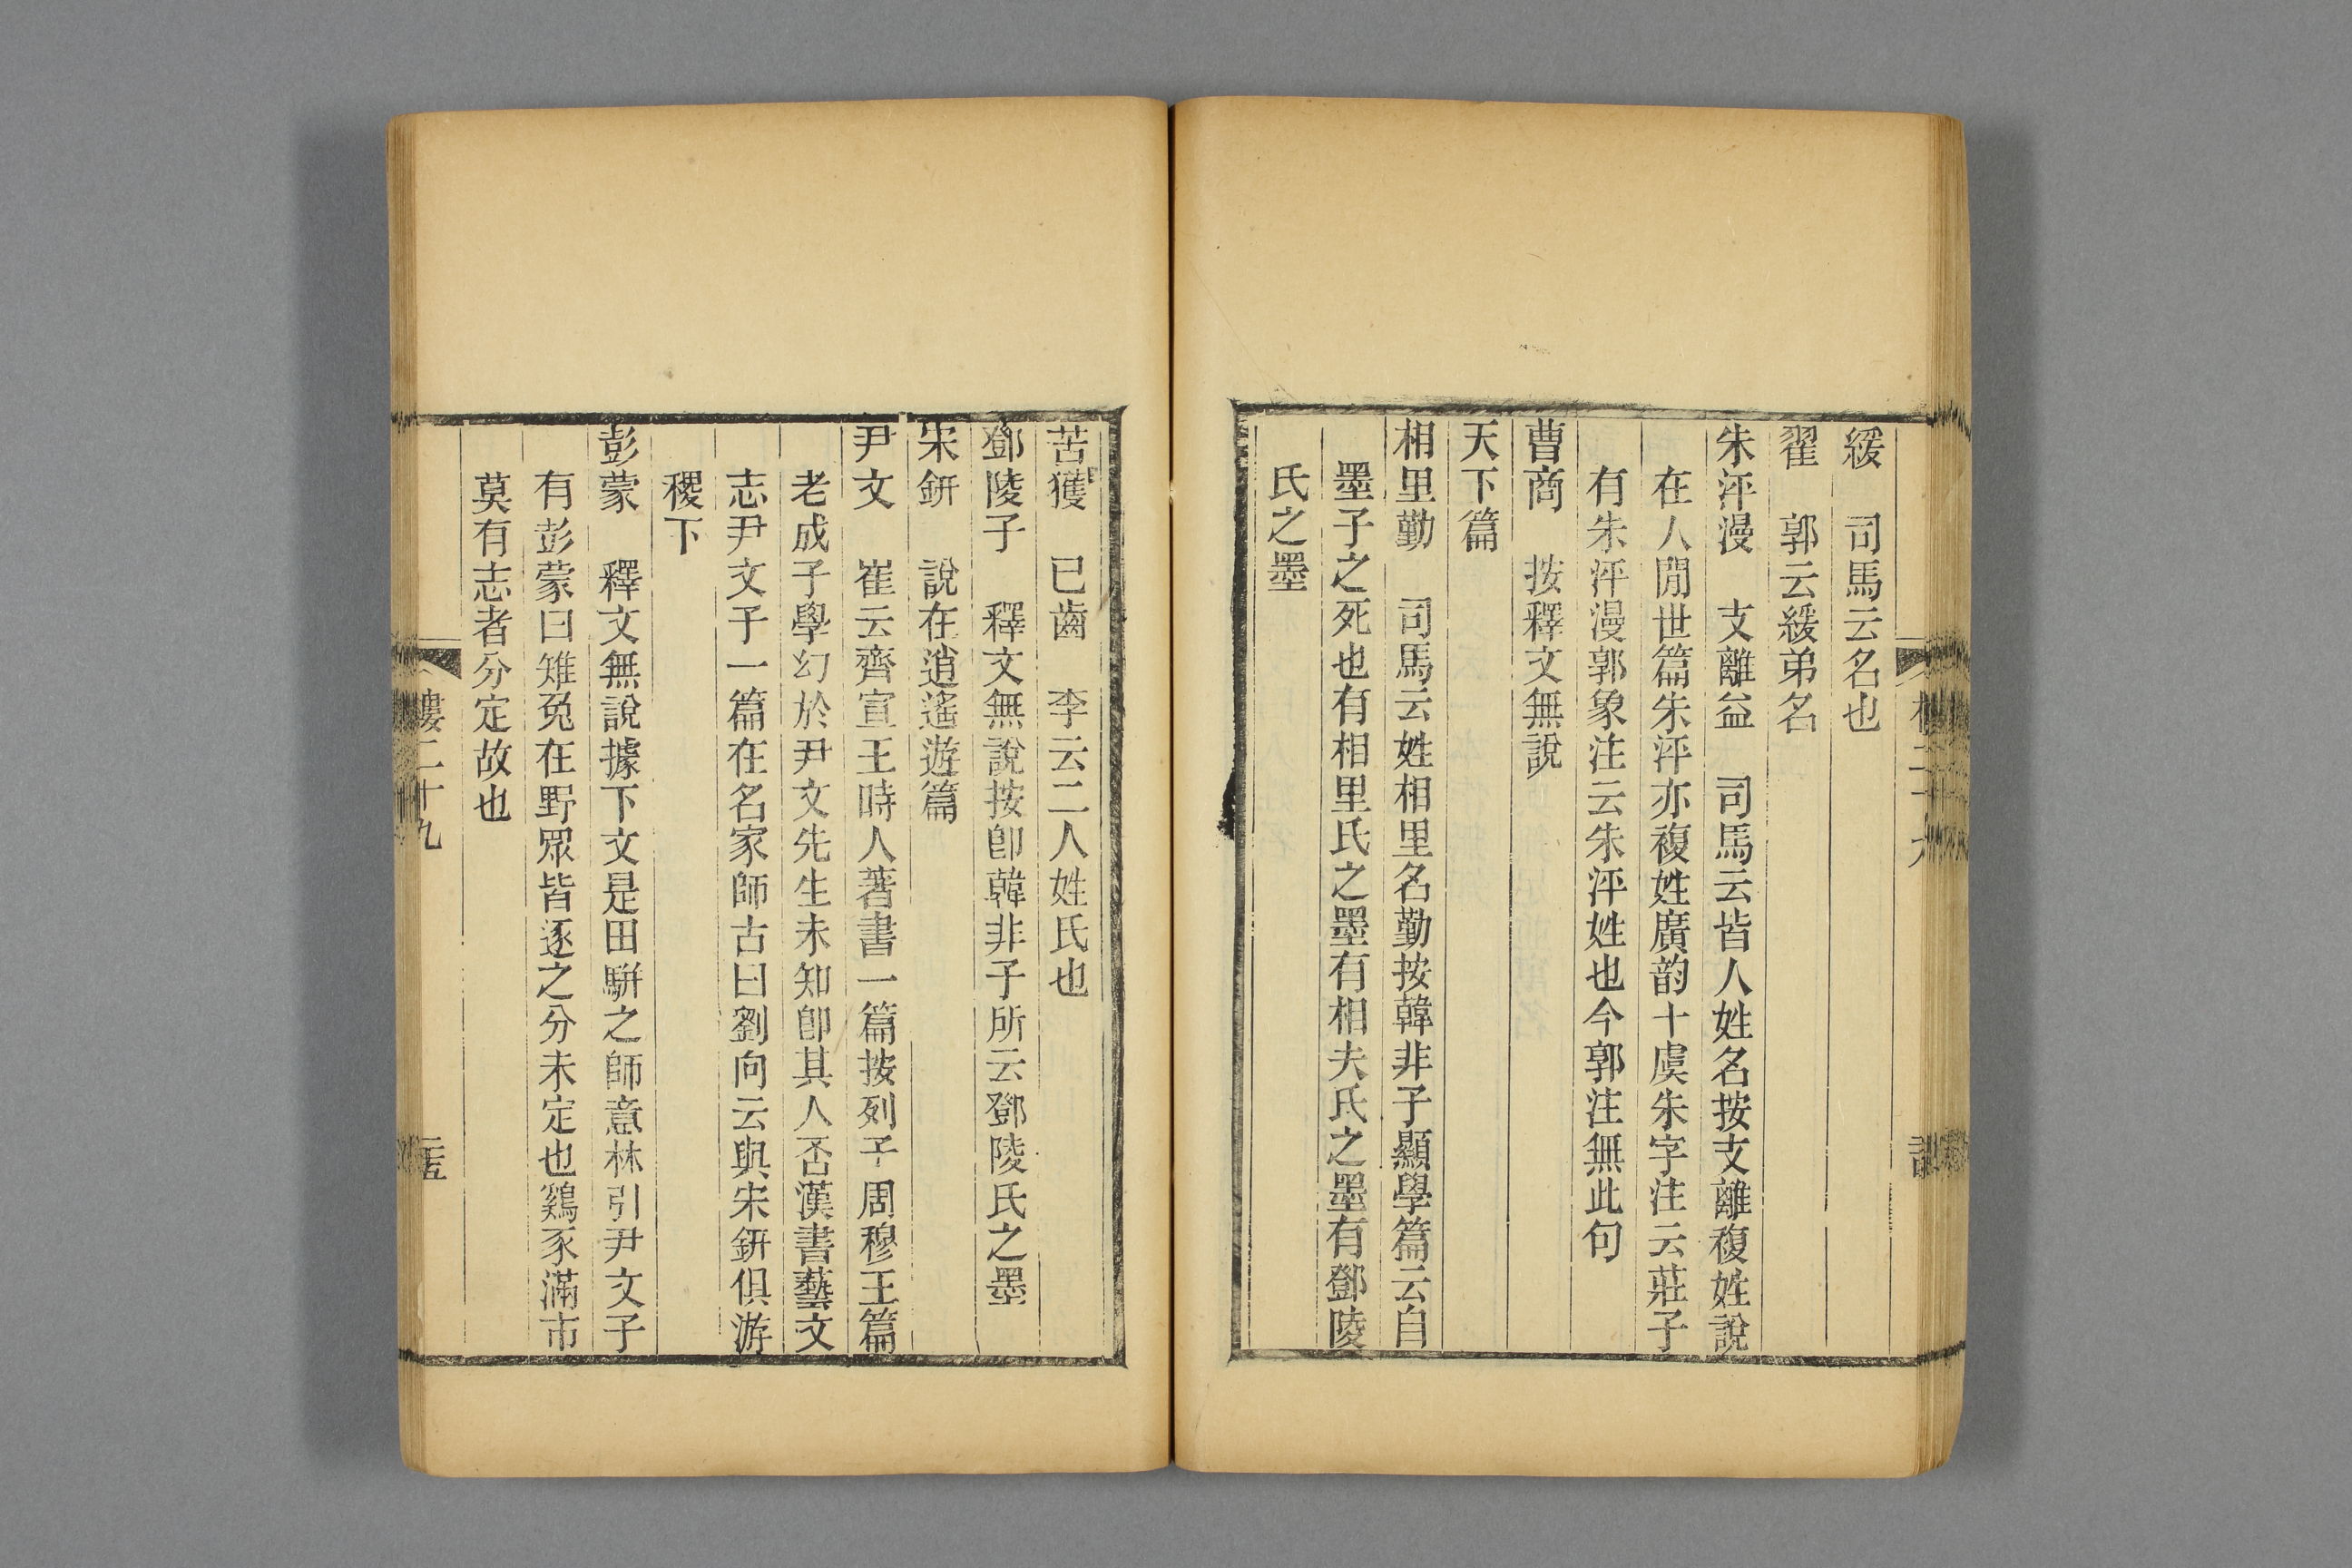 緩　司馬云名也
翟　郭云緩弟名
朱泙漫　支離益　司馬云皆人姓名按支離複姓說
在人閒世篇朱泙亦複姓廣韵十虞朱字注云莊子
有朱泙漫郭象注云朱泙姓也今郭注無此句
曹商　按釋文無說
天下篇
相里勤　司馬云姓相里名勤按韓非子顯學篇云自
墨子之死也有相里氏之墨有相夫氏之墨有鄧陵
氏之墨
苦獲　已齒　李云二人姓氏也
鄧陵子　釋文無說按卽韓非子所云鄧陵氏之墨
宋鈃　說在逍遙遊篇
尹文　崔云齊宣王時人著書一篇按列子周穆王篇
老成子學幻於尹文先生未知卽其人否漢書藝文
志尹文子一篇在名家師古曰劉向云與宋鈃俱游
稷下
彭蒙　釋文無說據下文是田駢之師意林引尹文子
有彭蒙曰雉兔在野眾皆逐之分未定也鷄豕滿市
莫有志者分定故也
樓二十九